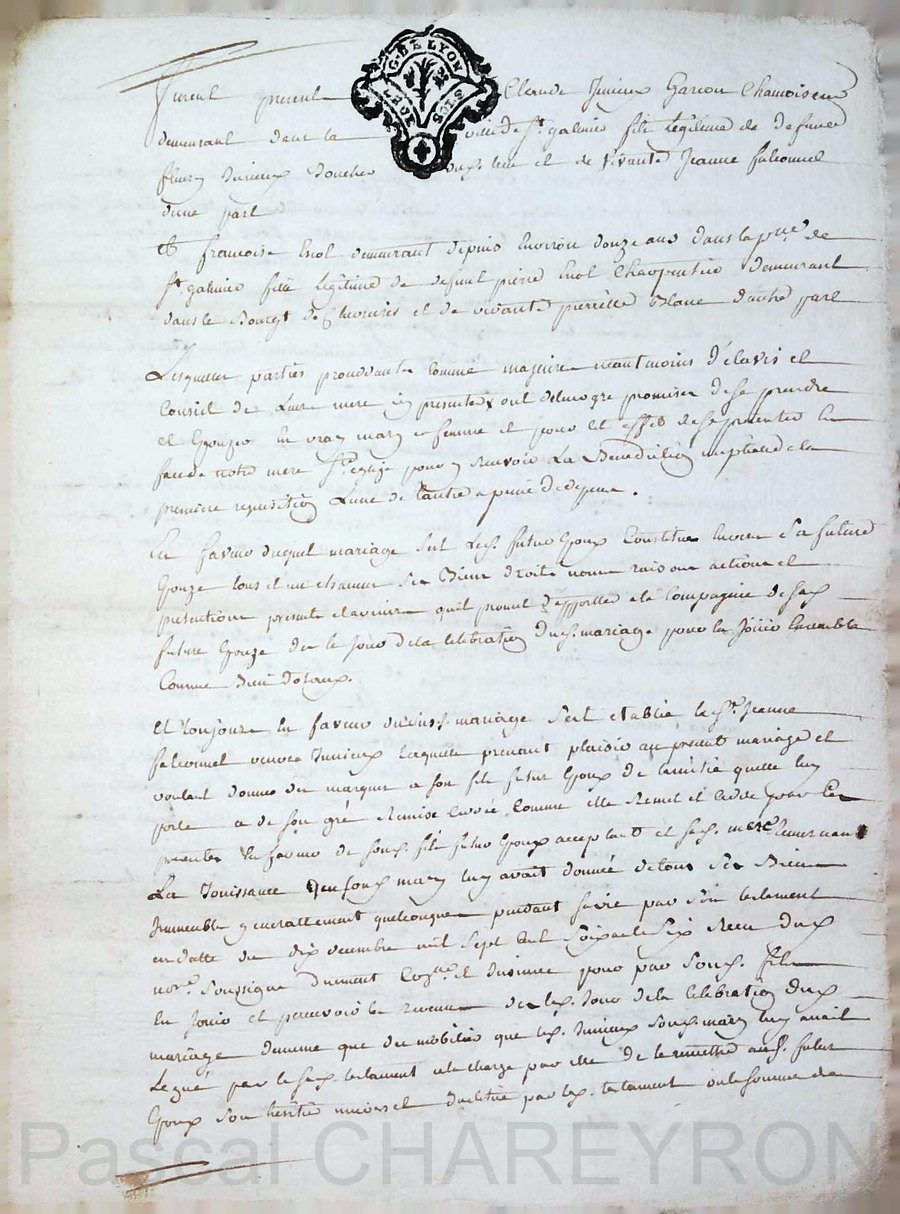 G. DE LYON
DEUX SOLS
Furent présents Claude Juricux Garcon Chamoiseur
demeurant dans la ville de St galmier fils legitime de defunct
fleury et de vivante Jeanne falconnet
dune part
Et francoise demeurant depuis Environ douze ans dans la de
St galmier fille legitime de defunt pierre Charpentier demeurant
dans le Bourgt de Chevrieres et de vivante pierrette Blanc dautre part
Lesquelles parties procedant comme majeures neantmoins de lavis et
Conseil de Leurs mere presentes ont de leur gre promises de se prendre
et Epouser En vray mary et femme et pour cet effet de se presenter En
face de notre mere Ste Eglise pour y recevoir La Benediction nuptiale a la
premiere requisition Lune de Lautre a peine de depens.
En faveur duquel mariage led. futur Epoux Constitue envers sa future
Epouze tous et un chacun ses Biens droits noms raisons actions et
pretentions presents et avenirs quil promet dapporter a la Compagnie de sad.
future Epouze des le jour de la celebration dud. mariage pour En Jouir Ensemble
Comme Biens dotaux.
Et toujours En faveur dudit mariage s'est etablie lad. Jeanne
falconnet veuve laquelle prenant plaisir au present mariage et
voulant donner des marques a son fils futur Epoux de lamitié quelle luy
porte a de son gré Remise cedée Comme elle Remet et cedde par Ces
presentes En faveur de sond. fils futur Epoux acceptant et sad. mere Remerciant
La Jouissance que sond. mary luy avait donnée de tous ses Biens
Immeubles generallement quelconques pendant sa vie par son testament
en datte du dix decembre mil sept cent soixante six Recu dud.
nore. soussigné dument Con.lé et Insinué pour par sond. fils
En Jouir et percevoir les revenus des led. Jour de la Celebration dud.
mariage de meme que du mobilier que led. sond. mary luy avait
Legué par le sus. testament a la charge par elle de le remettre aud. futur
Epoux son heritier universel institué par led. testament ou la somme de
Pascal CHAREYRON